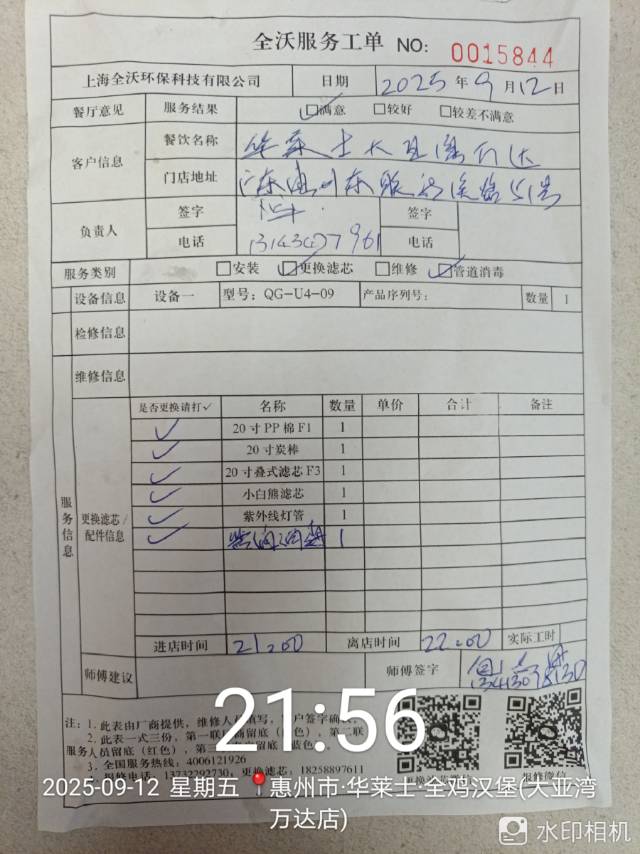 全沃服务工单 NO: 0015844
上海全沃环保科技有限公司 日期 2025年9月12日
餐厅意见 服务结果 满意 较好 较差不满意
客户信息 餐饮名称 华莱士大亚湾万达
门店地址 广东惠州
负责人 签字 签字
电话 电话
服务类别 安装 更换滤芯 维修 管道消毒
设备信息 设备一 型号: QG-U4-09 产品序列号: 数量 1
检修信息
维修信息
是否更换请打✓ 名称 数量 单价 合计 备注
✓ 20寸PP棉F1 1
✓ 20寸炭棒 1
✓ 20寸叠式滤芯F3 1
✓ 小白熊滤芯 1
✓ 紫外线灯管 1
✓ 1
服务信息
更换滤芯/配件信息
进店时间 21:00 离店时间 22:00 实际工时
师傅建议 师傅签字
注: 1. 此表由厂商提供, 维修人员填写, 客户签字确认
2. 此表一式三份, 第一联
服务人员留底(红色), 第三
3. 全国服务热线: 4006121926
报修电话: 13732292730; 更换滤芯: 18258897611
报修微信
21:56
2025-09-12 星期五 惠州市·华莱士·全鸡汉堡(大亚湾
万达店)
水印相机